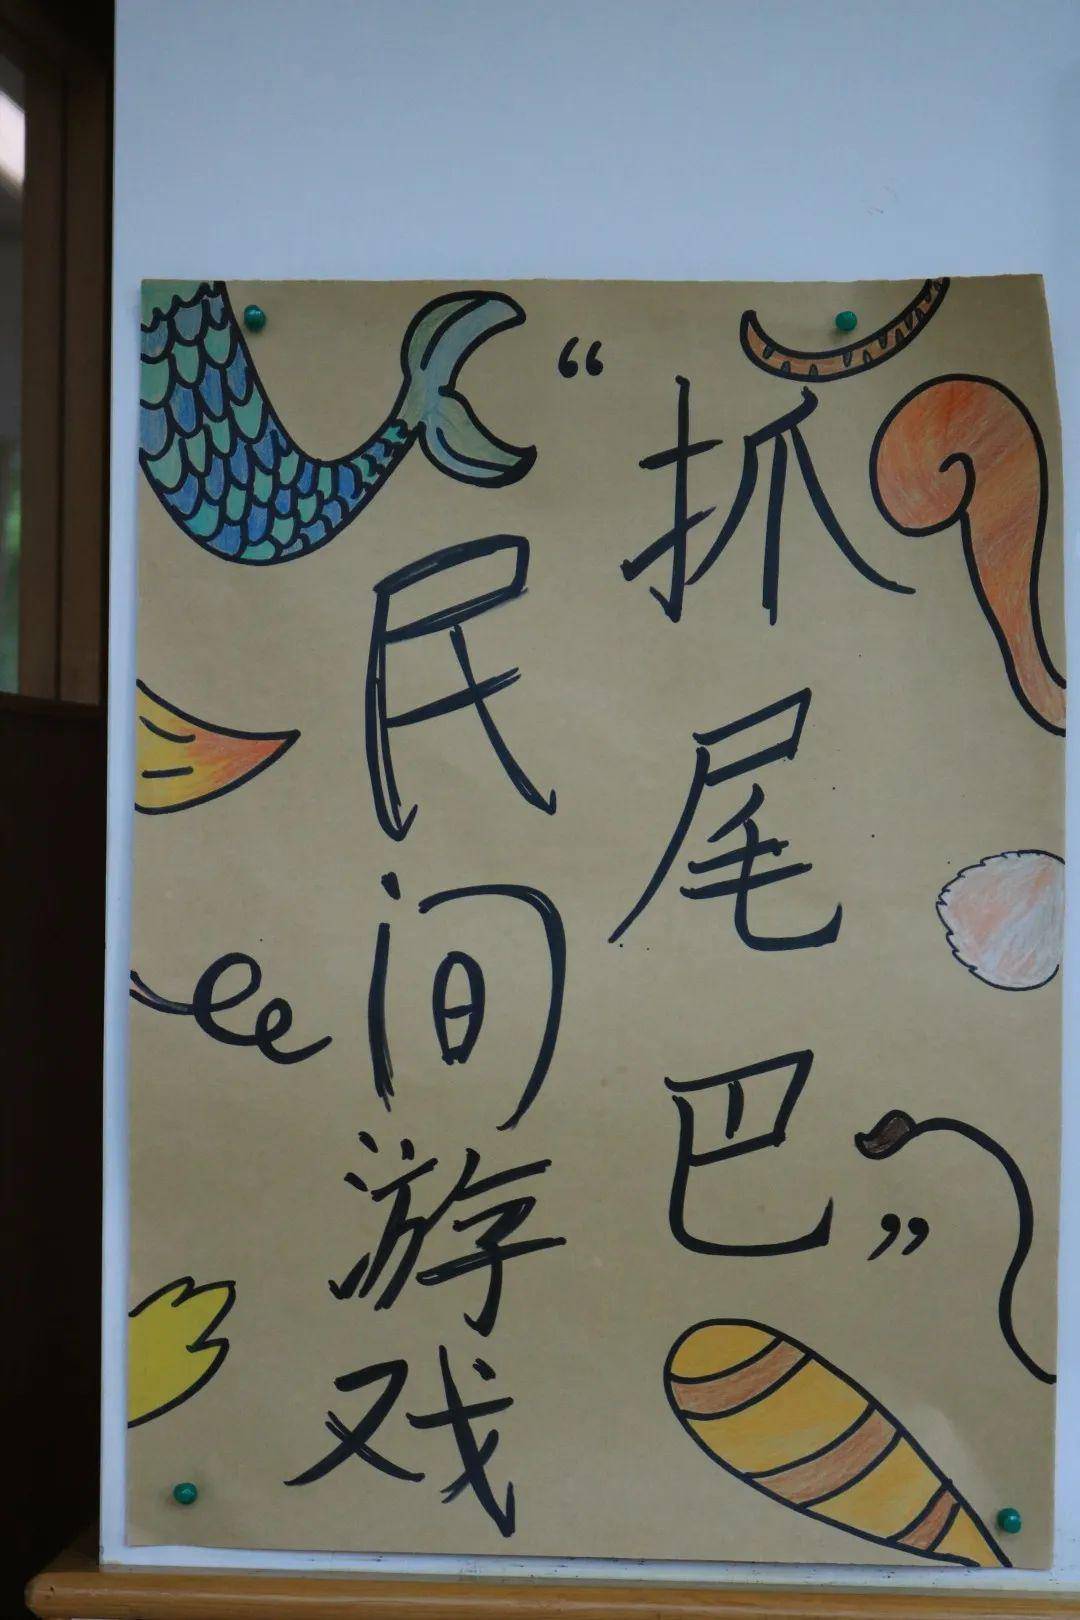 “抓尾巴”
民间游戏